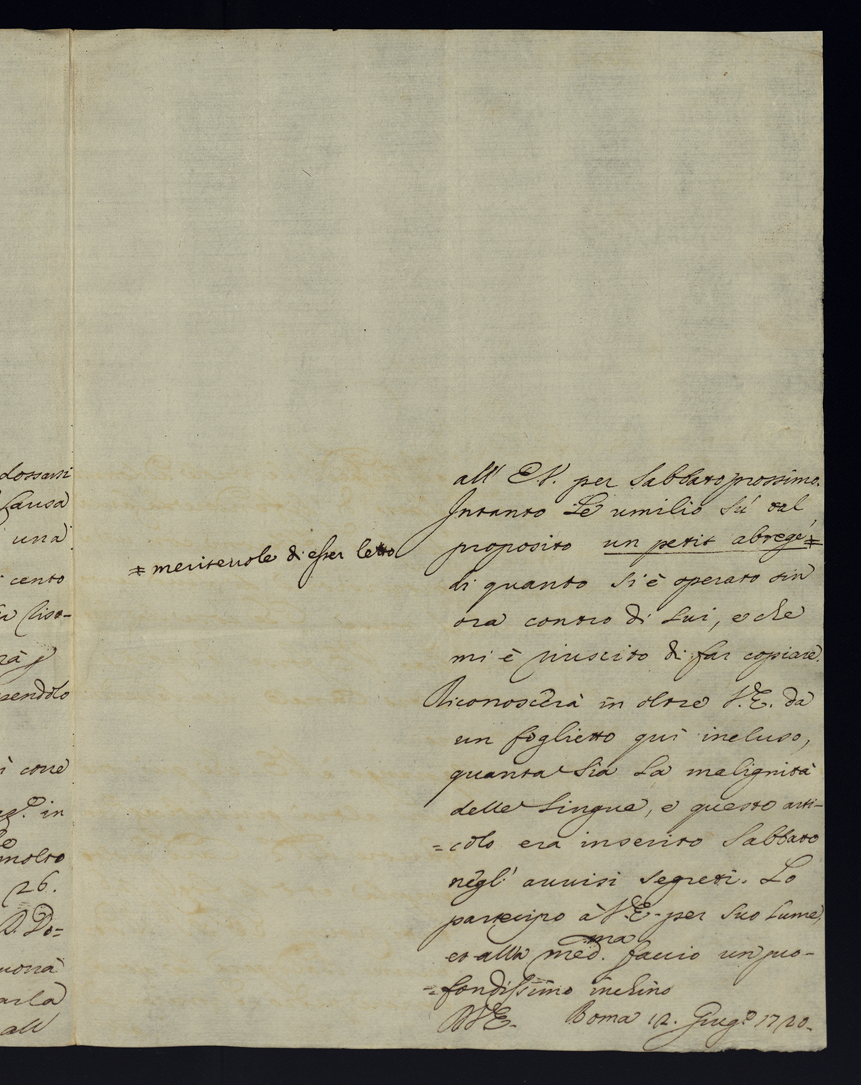 dossarsi
Causa
una
cento
riso-
rà p
cendolo
ì cone
in
molto
26.
D. Do=
arla
all
= meritevole di esser letto
all' E.V. per Sabbato prossimo.
Intanto Le umilio sù tal
proposito un petit abregé =
di quanto si è operato sin
ora contro di Lui, e che
mi è riuscito di far copiare.
Riconoscerà in oltre V.E. da
un foglietto quì incluso,
quanta sia la malignità
delle Lingue, e questo arti-
=colo era inserito Sabbato
negl' avvisi segreti. Lo
partecipo à V.E. per Suo Lume,
et alla med.ma faccio un pro-
=fondissimo inchino
D.V.E. Roma 12. Giug.o 1720.